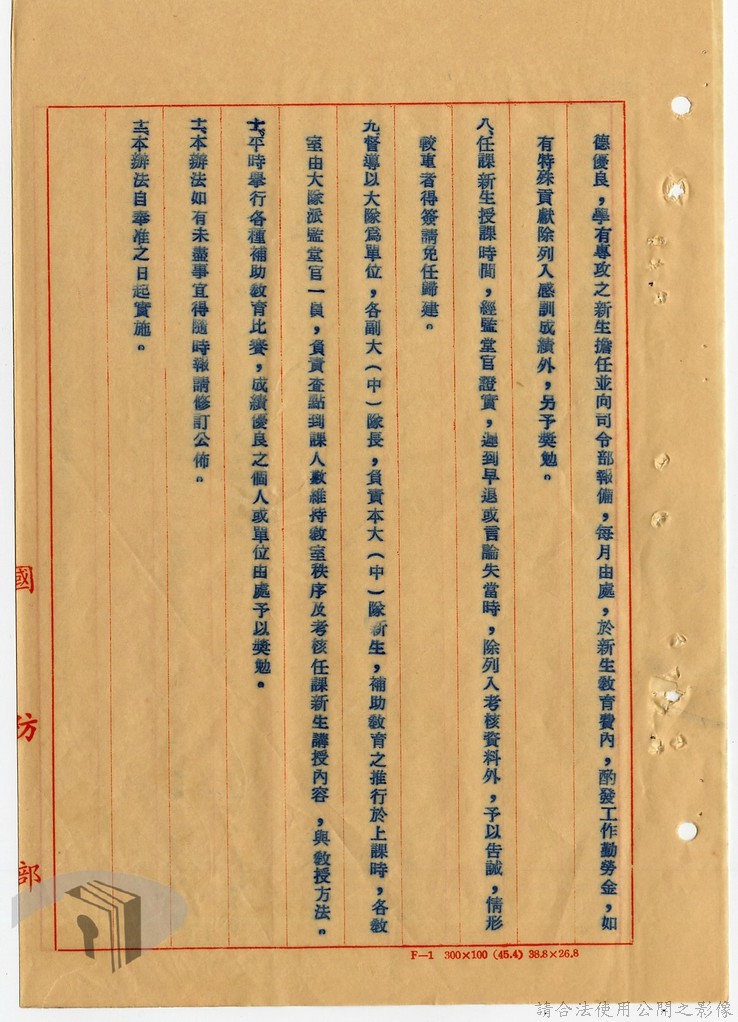 德優良，學有專攻之新生擔任並向司令部報備，每月由處，於新生教育費內，酌發工作勤勞金，如
有特殊貢獻除列入感訓成績外，另予獎勉。
八、任課新生授課時間，經監堂官證實，遲到早退或言論失當時，除列入考核資料外，予以告誡，情形
較重者得簽請免任歸建。
九、督導以大隊為單位，各副大（中）隊長，負責本大（中）隊新生，補助教育之推行於上課時，各教
室由大隊派監堂官一員，負責查點到課人數維持教室秩序及考核任課新生講授內容，與教授方法。
十、平時舉行各種補助教育比賽，成績優良之個人或單位由處予以獎勉。
十一、本辦法如有未盡事宜得隨時報請修訂公佈。
十二、本辦法自奉准之日起實施。
國防部
F—1 300×100 (45.4) 38.8×26.8
請合法使用公開之影像